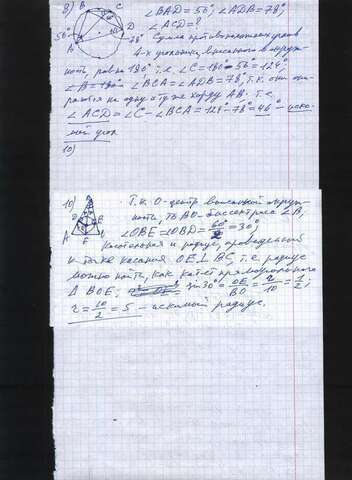 9) ∠BAD = 56°; ∠ADB = 78°
∠ACD = ?
Сумма противоположных углов
4-х угольника, вписанного в окруж-
ность, равна 180°, т.е. ∠C = 180° - 56° = 124°;
∠BCA = ∠ADB = 78°, т.к. они опи-
раются на одну и ту же хорду AB. т.е.
∠ACD = ∠C - ∠BCA = 124° - 78° = 46° - иско-
мый угол
10)
10) Т.к. O - центр вписанной окруж-
ности, то BO - биссектриса ∠B,
∠OBE = ∠OBD = 60°/2 = 30°;
Касательная и радиус, проведенный
к точке касания OE⊥BC, т.е. радиус
можно найти, как катет прямоугольного
Δ BOE; sin30° = OE/BO = r/10 = 1/2;
r = 10/2 = 5 - искомый радиус.